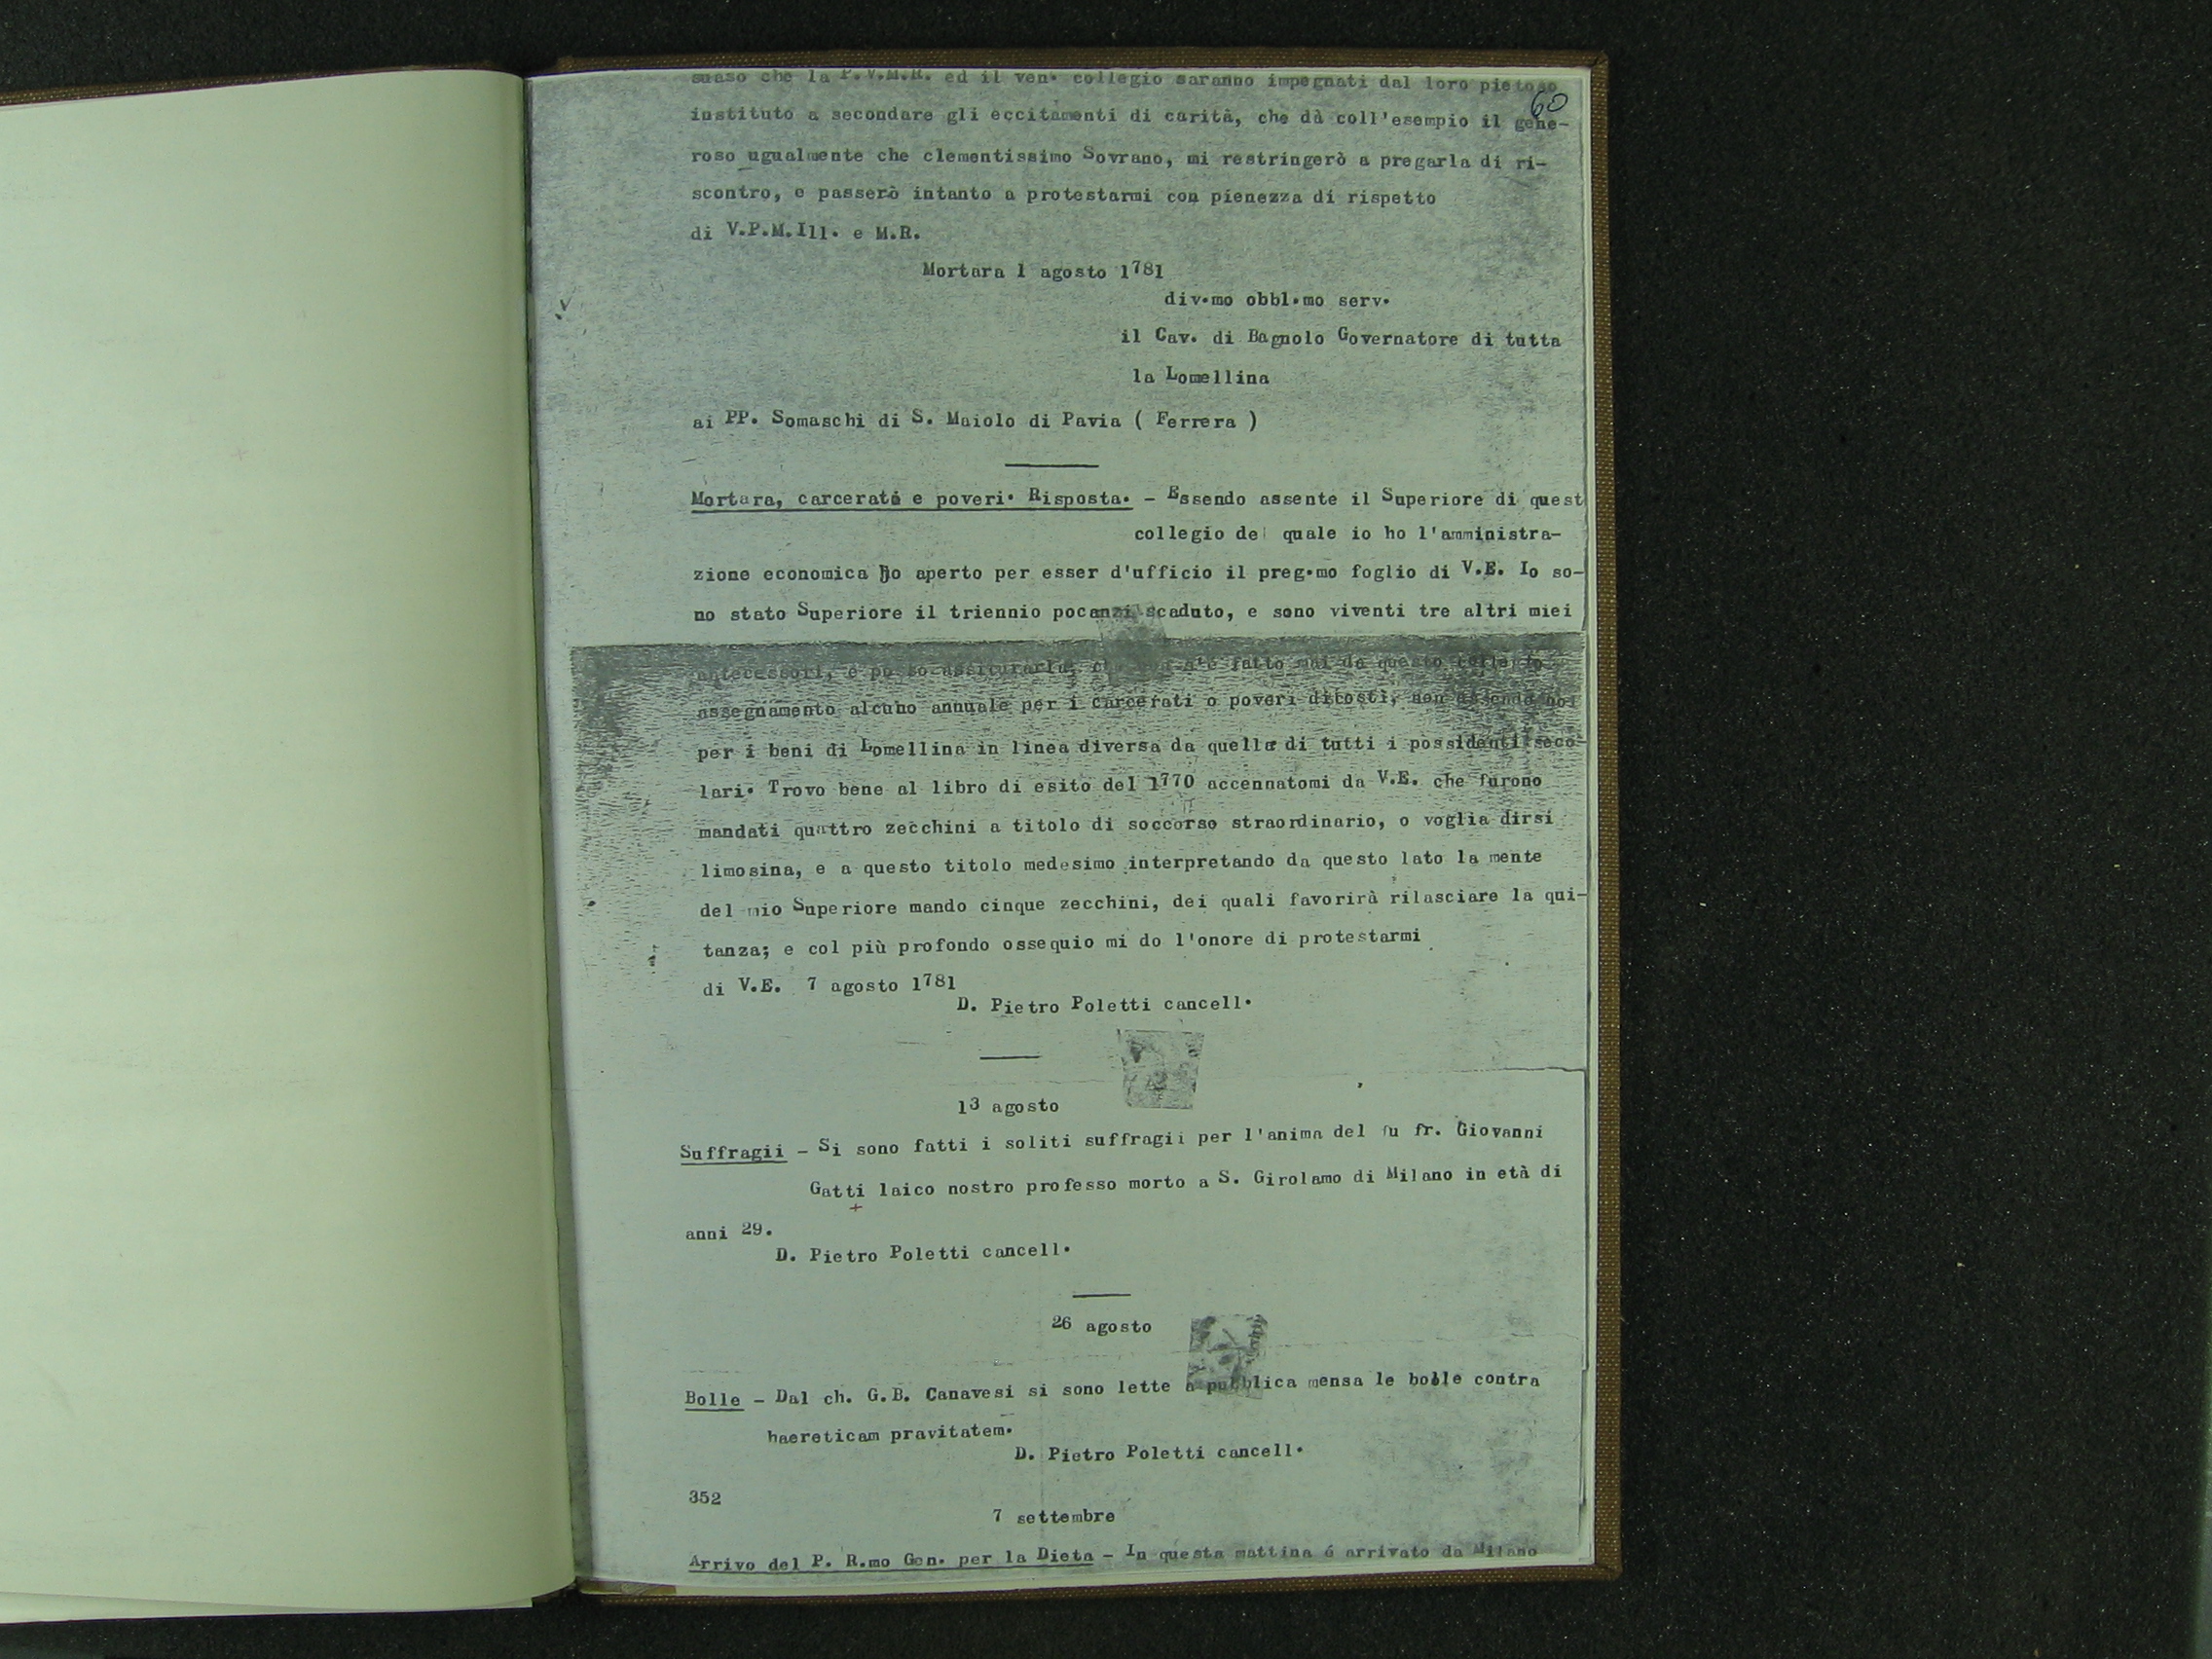 suaso che la P.V.M.R. ed il ven. collegio saranno impegnati dal loro pietoso
60
instituto a secondare gli eccitamenti di carità, che dà coll'esempio il gene-
roso ugualmente che clementissimo Sovrano, mi restringerò a pregarla di ri-
scontro, e passerò intanto a protestarmi con pienezza di rispetto
di V.P.M.Ill. e M.R.
Mortara 1 agosto 1781
div.mo obbl.mo serv.
il Cav. di Bagnolo Governatore di tutta
la Lomellina
ai PP. Somaschi di S. Maiolo di Pavia ( Ferrera )
Mortara, carcerati e poveri. Risposta. - Essendo assente il Superiore di quest
collegio del quale io ho l'amministra-
zione economica ho aperto per esser d'ufficio il preg.mo foglio di V.E. Io so-
no stato Superiore il triennio pocanzi scaduto, e sono viventi tre altri miei
antecessori, e posso assicurarla, che s'è fatto mai da questo collegio
assegnamento alcuno annuale per i carcerati o poveri di costì, non essendo noi
per i beni di Lomellina in linea diversa da quella di tutti i possidenti seco-
lari. Trovo bene al libro di esito del 1770 accennatomi da V.E. che furono
mandati quattro zecchini a titolo di soccorso straordinario, o voglia dirsi
limosina, e a questo titolo medesimo interpretando da questo lato la mente
del mio Superiore mando cinque zecchini, dei quali favorirà rilasciare la qui-
tanza; e col più profondo ossequio mi do l'onore di protestarmi
di V.E. 7 agosto 1781
D. Pietro Poletti cancell.
13 agosto
Suffragii - Si sono fatti i soliti suffragii per l'anima del fu fr. Giovanni
Gatti laico nostro professo morto a S. Girolamo di Milano in età di
+
anni 29.
D. Pietro Poletti cancell.
26 agosto
Bolle - Dal ch. G.B. Canavesi si sono lette a pubblica mensa le bolle contra
haereticam pravitatem.
D. Pietro Poletti cancell.
352
7 settembre
Arrivo del P. R.mo Gen. per la Dieta - In questa mattina é arrivato da Milano